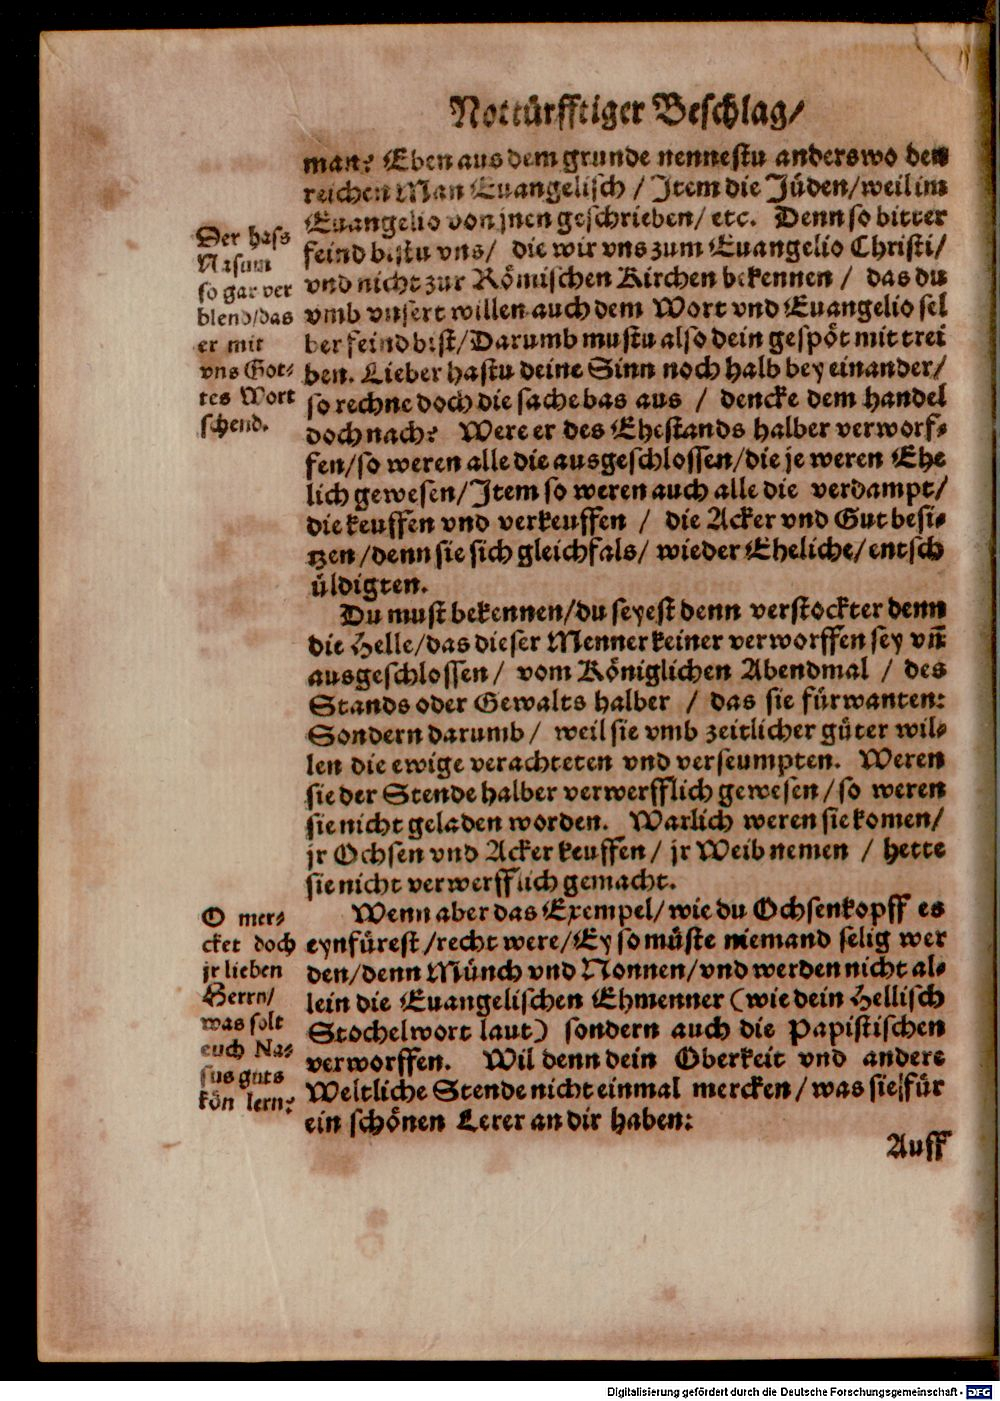 Nottürfftiger Beschlag/
man? Eben aus dem grunde nennestu anderswo den
reichen Man Euangelisch / Item die Jüden/weil im
Euangelio von jnen geschrieben/ etc. Denn so bitter
feind bistu vns/ die wir vns zum Euangelio Christi/
vnd nicht zur Römischen Kirchen bekennen / das du
vmb vnsert willen auch dem Wort vnd Euangelio sel
ber feind bist/Darumb mustu also dein gespöt mit trei
ben. Lieber hastu deine Sinn noch halb bey einander/
so rechne doch die sache bas aus / dencke dem handel
doch nach? Were er des Ehestands halber verworf-
fen/so weren alle die ausgeschlossen/die je weren Ehe
lich gewesen/Item so weren auch alle die verdampt/
die keuffen vnd verkeuffen / die Acker vnd Gut besi-
tzen/denn sie sich gleichfals/ wie der Eheliche/entsch
üldigten.
Du must bekennen/du seyest denn verstockter denn
die Helle/das dieser Menner keiner verworffen sey vnd̄
ausgeschlossen/ vom Königlichen Abendmal / des
Stands oder Gewalts halber / das sie fürwanten:
Sondern darumb/ weil sie vmb zeitlicher güter wil-
len die ewige verachteten vnd verseumpten. Weren
sie der Stende halber verwerfflich gewesen/so weren
sie nicht geladen worden. Warlich weren sie komen/
jr Ochsen vnd Acker keuffen/ jr Weib nemen / hette
sie nicht verwerfflich gemacht.
Wenn aber das Exempel/wie du Ochsenkopff es
eynfürest/recht were/Ey so müste niemand selig wer
den/denn Münch vnd Nonnen/vnd werden nicht al-
lein die Euangelischen Ehmenner (wie dein Hellisch
Stochelwort laut) sondern auch die Papistischen
verworffen. Wil denn dein Oberkeit vnd andere
Weltliche Stende nicht einmal mercken/was sie für
ein schönen Lerer an dir haben:
Auff
Der hass
Nasum
so gar ver
blend/das
er mit
vns Got-
tes Wort
schend.
O mer-
cket doch
jr lieben
Herrn/
was solt
euch Na-
sus guts
kön lern?
Digitalisierung gefördert durch die Deutsche Forschungsgemeinschaft - DFG